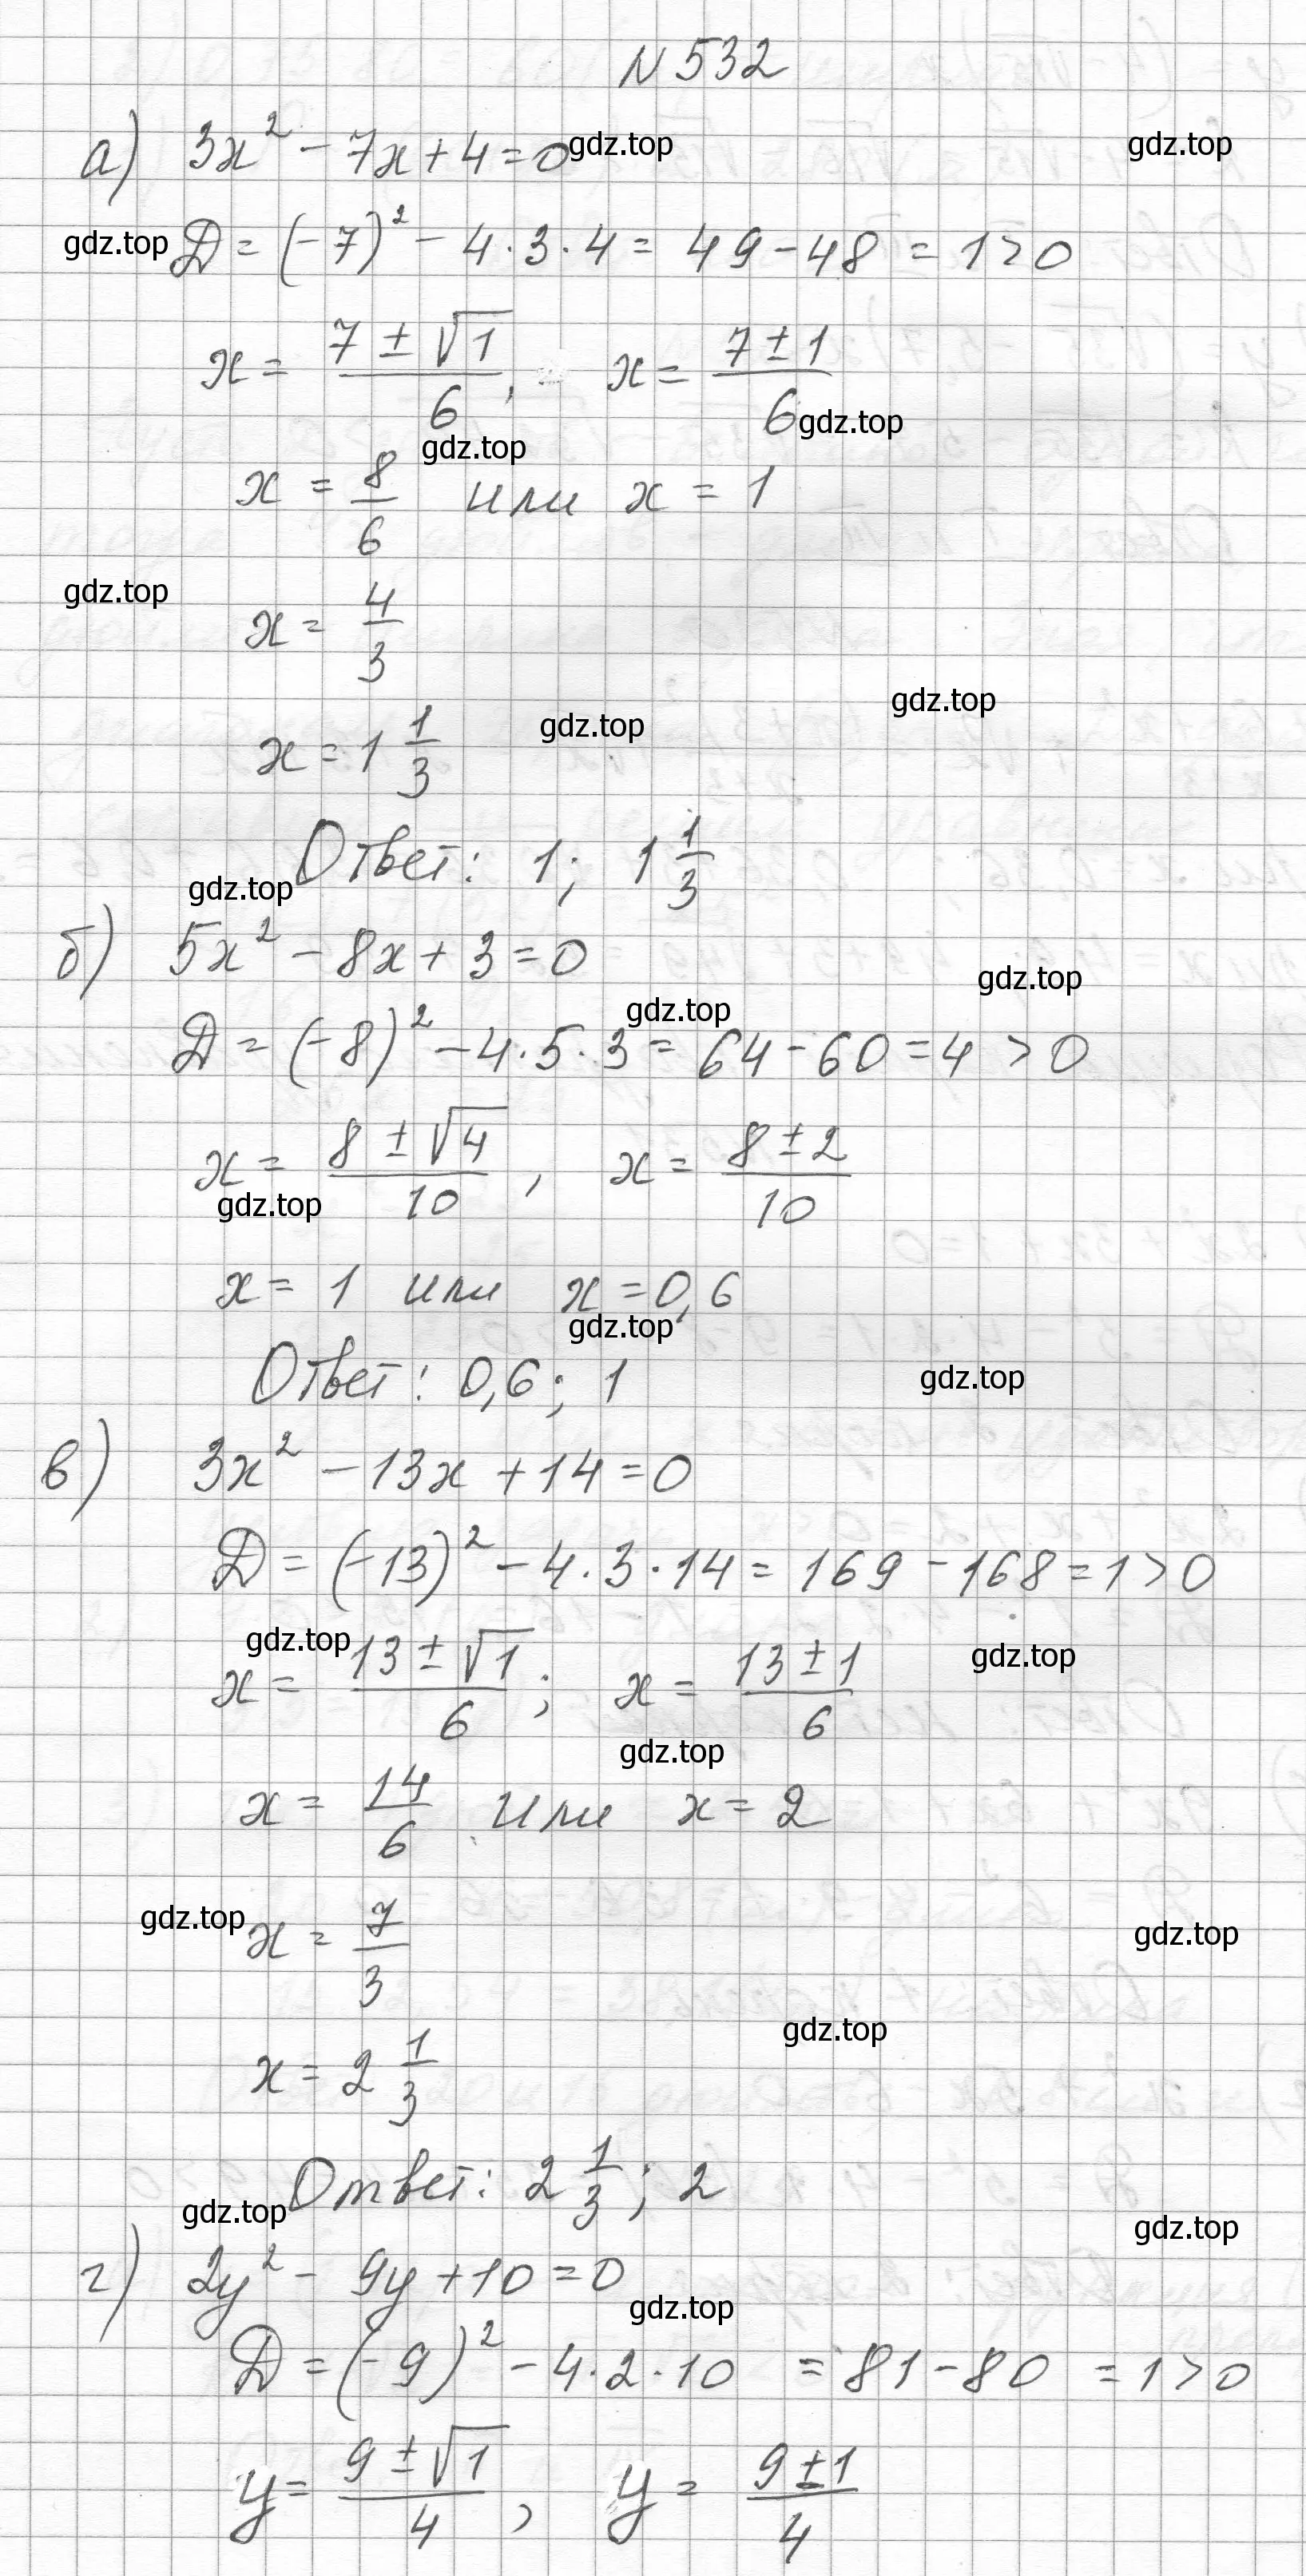 N 532
а) 3x² - 7x + 4 = 0 gdz.top gdz.top
gdz.top D = (-7)² - 4·3·4 = 49 - 48 = 1 > 0
x = (7 ± √1)/6, x = (7 ± 1)/6
gdz.top gdz.top
x = 8/6 или x = 1
gdz.top
x = 4/3
gdz.top gdz.top
x = 1 1/3
Ответ: 1; 1 1/3
gdz.top
б) 5x² - 8x + 3 = 0
gdz.top gdz.top
D = (-8)² - 4·5·3 = 64 - 60 = 4 > 0
x = (8 ± √4)/10, x = (8 ± 2)/10
gdz.top
x = 1 или x = 0,6
gdz.top
Ответ: 0,6; 1 gdz.top
в) 3x² - 13x + 14 = 0
D = (-13)² - 4·3·14 = 169 - 168 = 1 > 0
gdz.top gdz.top
x = (13 ± √1)/6; x = (13 ± 1)/6
gdz.top
x = 14/6 или x = 2
gdz.top gdz.top
x = 7/3
gdz.top
x = 2 1/3
Ответ: 2 1/3; 2
gdz.top gdz.top
г) 2y² - 9y + 10 = 0
gdz.top
D = (-9)² - 4·2·10 = 81 - 80 = 1 > 0
y = (9 ± √1)/4, y = (9 ± 1)/4